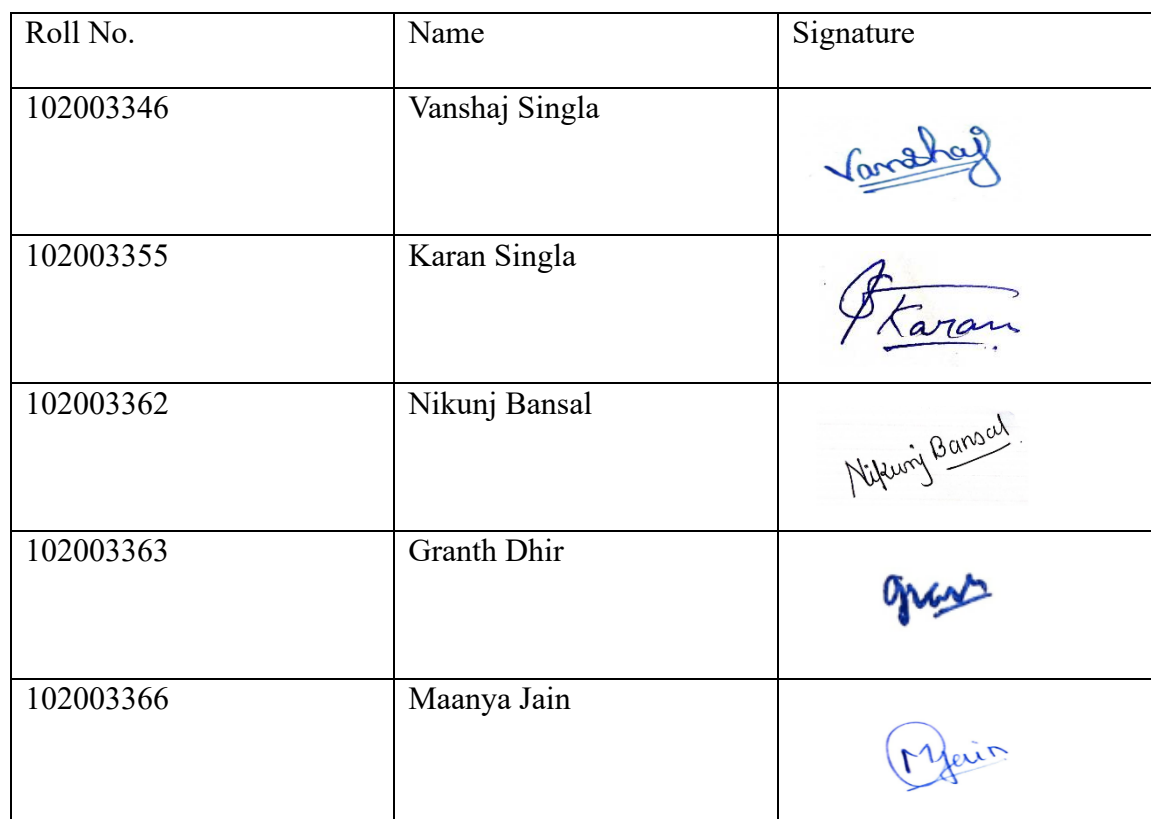 Roll No. Name Signature
102003346 Vanshaj Singla Vanshaj
102003355 Karan Singla Karan
102003362 Nikunj Bansal Nikunj Bansal
102003363 Granth Dhir
102003366 Maanya Jain MJain